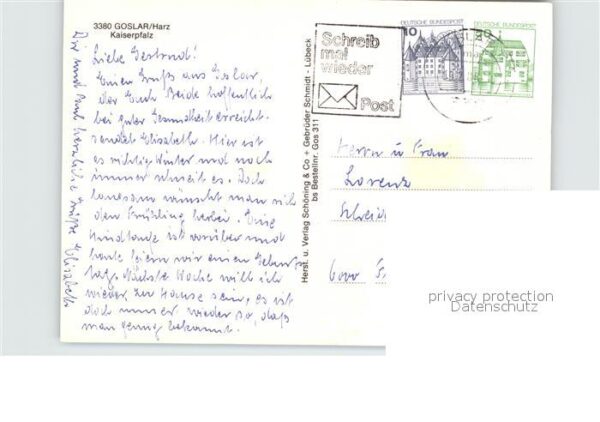 3380 GOSLAR/Harz
Kaiserpfalz
Liebe Gertrud!
Einen Gruß aus Goslar,
der Euch Beide hoffentlich
bei guter Gesundheit erreicht.
sendet Elisabeth. Hier ist
es richtig Winter und noch
immer schneit es. Doch
langsam wünscht man sich
den Frühling herbei. Eine
ist vorüber und
heute feiern wir einen Geburts
tag. Nächste Woche will ich
wieder zu Hause sein, es ist
doch immer wieder so, daß
man genug bekommt.
Dir und Buch herzliche Grüße Elisabeth
Herst. u. Verlag Schöning & Co + Gebrüder Schmidt - Lübeck
bs Bestellnr. Gos 311
Schreib
mal
wieder
Post
10
DEUTSCHE BUNDESPOST
DEUTSCHE BUNDESPOST
Herrn u Frau
Lorenz
6000
privacy protection
Datenschutz